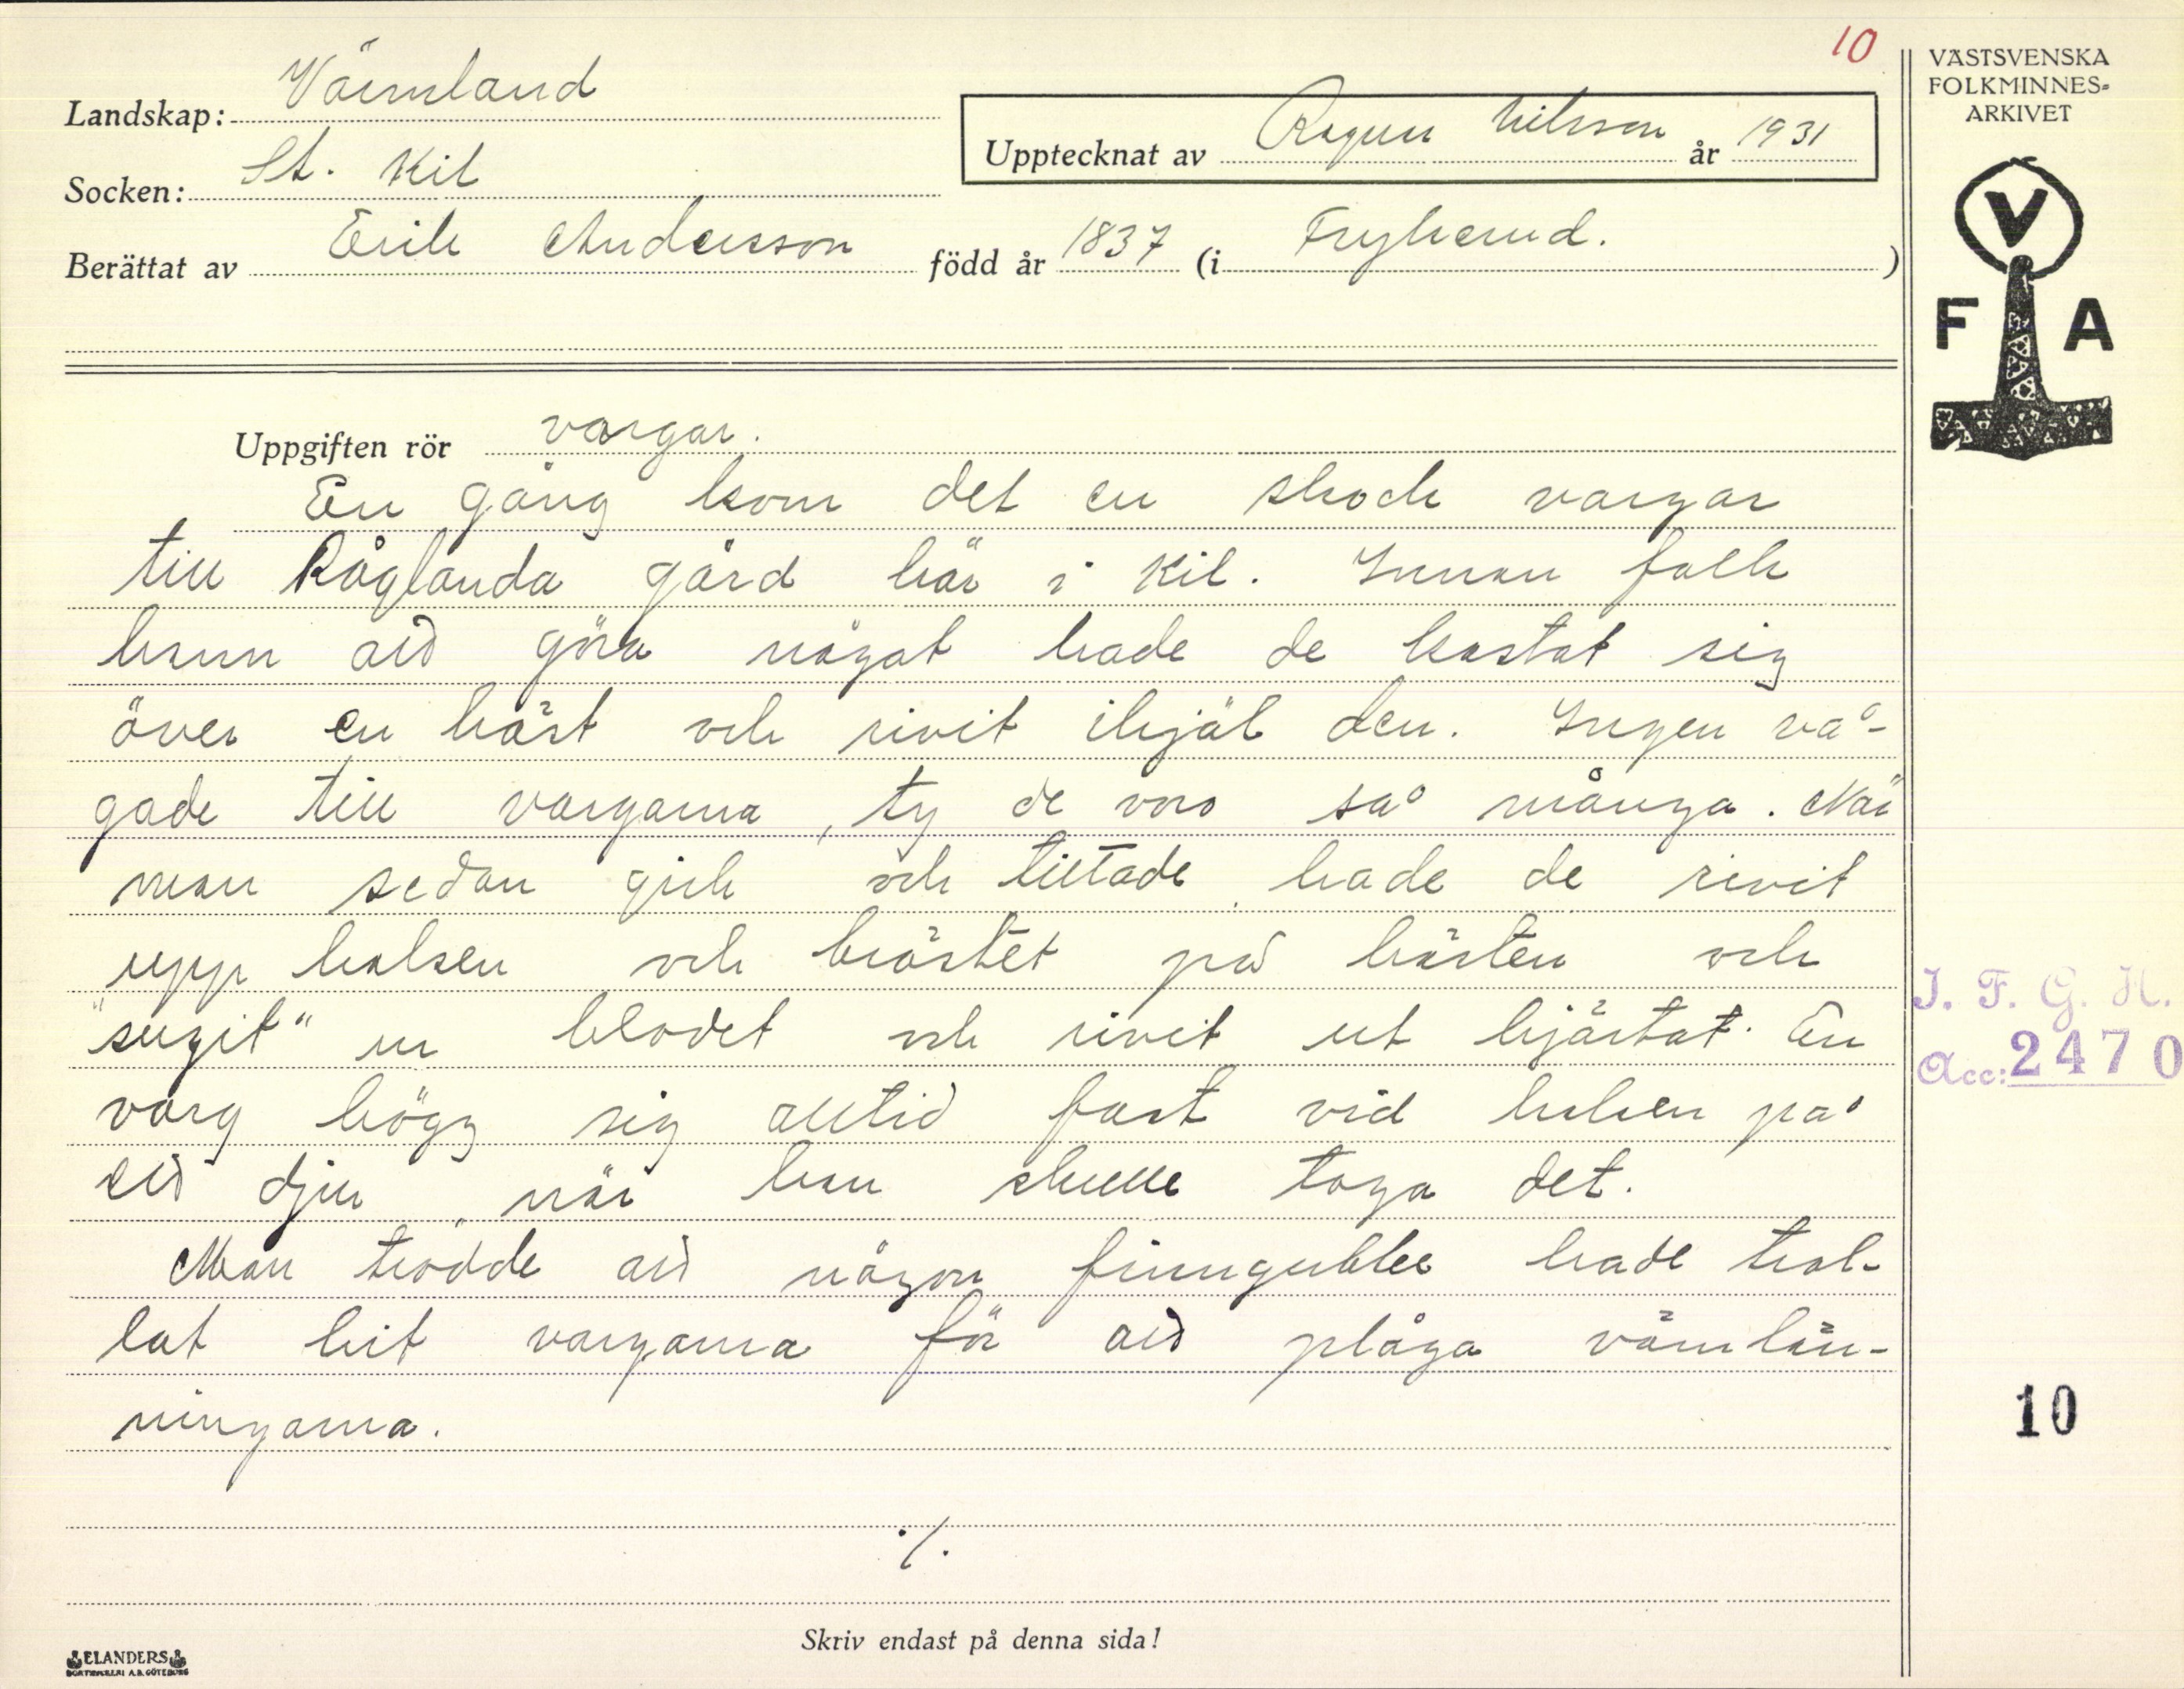 10
VÄSTSVENSKA
FOLKMINNES-
ARKIVET
Landskap: Värmland
Upptecknat av Ragnar Nilsson år 1931
Socken: St. Kil
Berättat av Erik Andersson född år 1837 (i Frykerud.)
V
F A
Uppgiften rör vargar.
En gång kom det en skock vargar
till Råglanda gård här i Kil. Innan folk
hann att göra något hade de kastat sig
över en häst och rivit ihjäl den. Ingen vå-
gade till vargarna, ty de voro så många. När
man sedan gick och tittade, hade de rivit
upp halsen och bröstet på hästen och
"sugit" ur blodet och rivit ut hjärtat. En
varg högg sig alltid fast vid halsen på
ett djur, när han skulle taga det.
Man trodde att någon finngubbe hade trol-
lat hit vargarna för att plåga värmlän-
ningarna.
./.
I. F. G. H.
Acc: 2470
10
Skriv endast på denna sida!
ELANDERS
BOKTRYCKERI A.B. GÖTEBORG